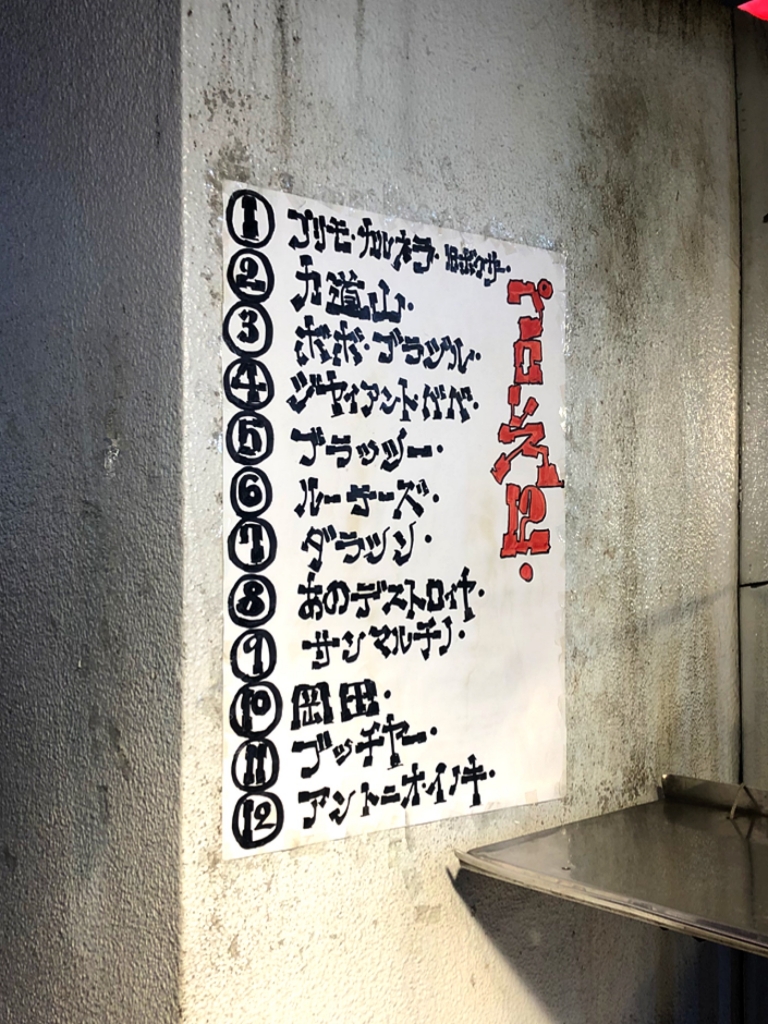 ① プリモ・カルネラ・旧ボクサー・
② 力道山・
③ ボボ・ブラジル・
④ ジャイアント・ババ・
⑤ ブラッシー・
⑥ ルーテーズ・
⑦
⑧ おのデストロイヤ・
⑨ サンマルチノ・
⑩ 岡田・
⑪ ブッチャー・
⑫ アントニオ・イノキ・